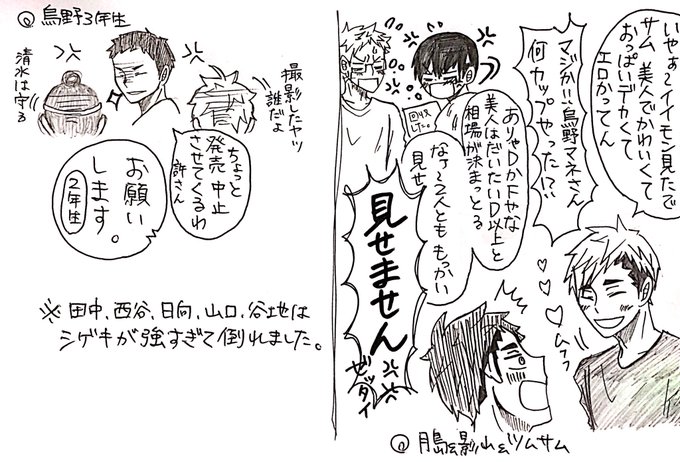 いやぁ~イイモン見たで
サム 美人でかわいくて
おっぱいデカくて
エロかってん
マジか!!烏野マネさん
何カップやった!?
ありゃDかFやな
美人はだいたいD以上と
相場が決まっとる
なァ~2人とももっかい
見せ
見せません
ゼッタイ
回収
LT~。
ムフフ
Q 月島&影山&ツムサム
Q 烏野3年生
撮影したヤツ
誰だよ
清水は守る
ちょっと
発売中止
させてくるわ
許さん
お願い
します。
2年生
※田中、西谷、日向、山口、谷地は
シゲキが強すぎて倒れました。